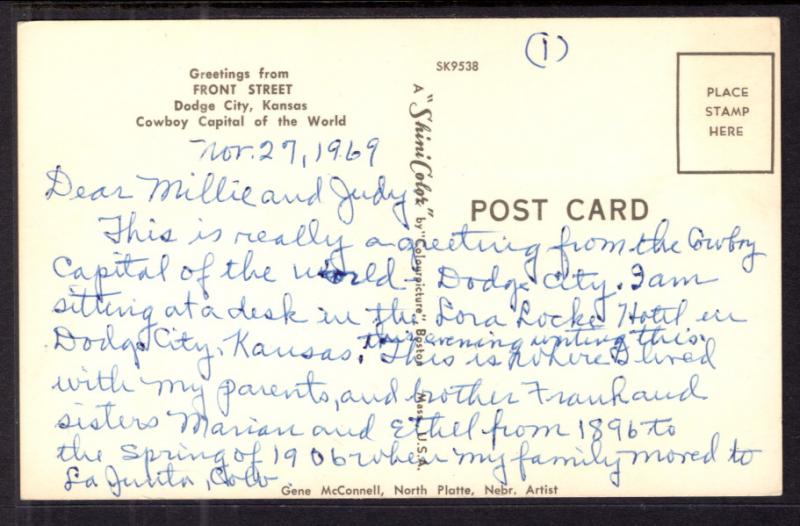 (1)
SK9538
Greetings from
FRONT STREET
Dodge City, Kansas
Cowboy Capital of the World
PLACE
STAMP
HERE
A "ShiniColor" by "Colourpicture," Boston Mass. U.S.A.
POST CARD
Nov. 27, 1969
Dear Millie and Judy
This is really a greeting from the Cowboy
Capital of the world - Dodge City. I am
sitting at a desk in the Lora Locke Hotel in
Dodge City, Kansas. this evening writing this.
This is where I lived
with my parents, and brother Frank and
sisters Marian and Ethel from 1896 to
the Spring of 1906 when my family moved to
La Junta, Colo.
Gene McConnell, North Platte, Nebr. Artist